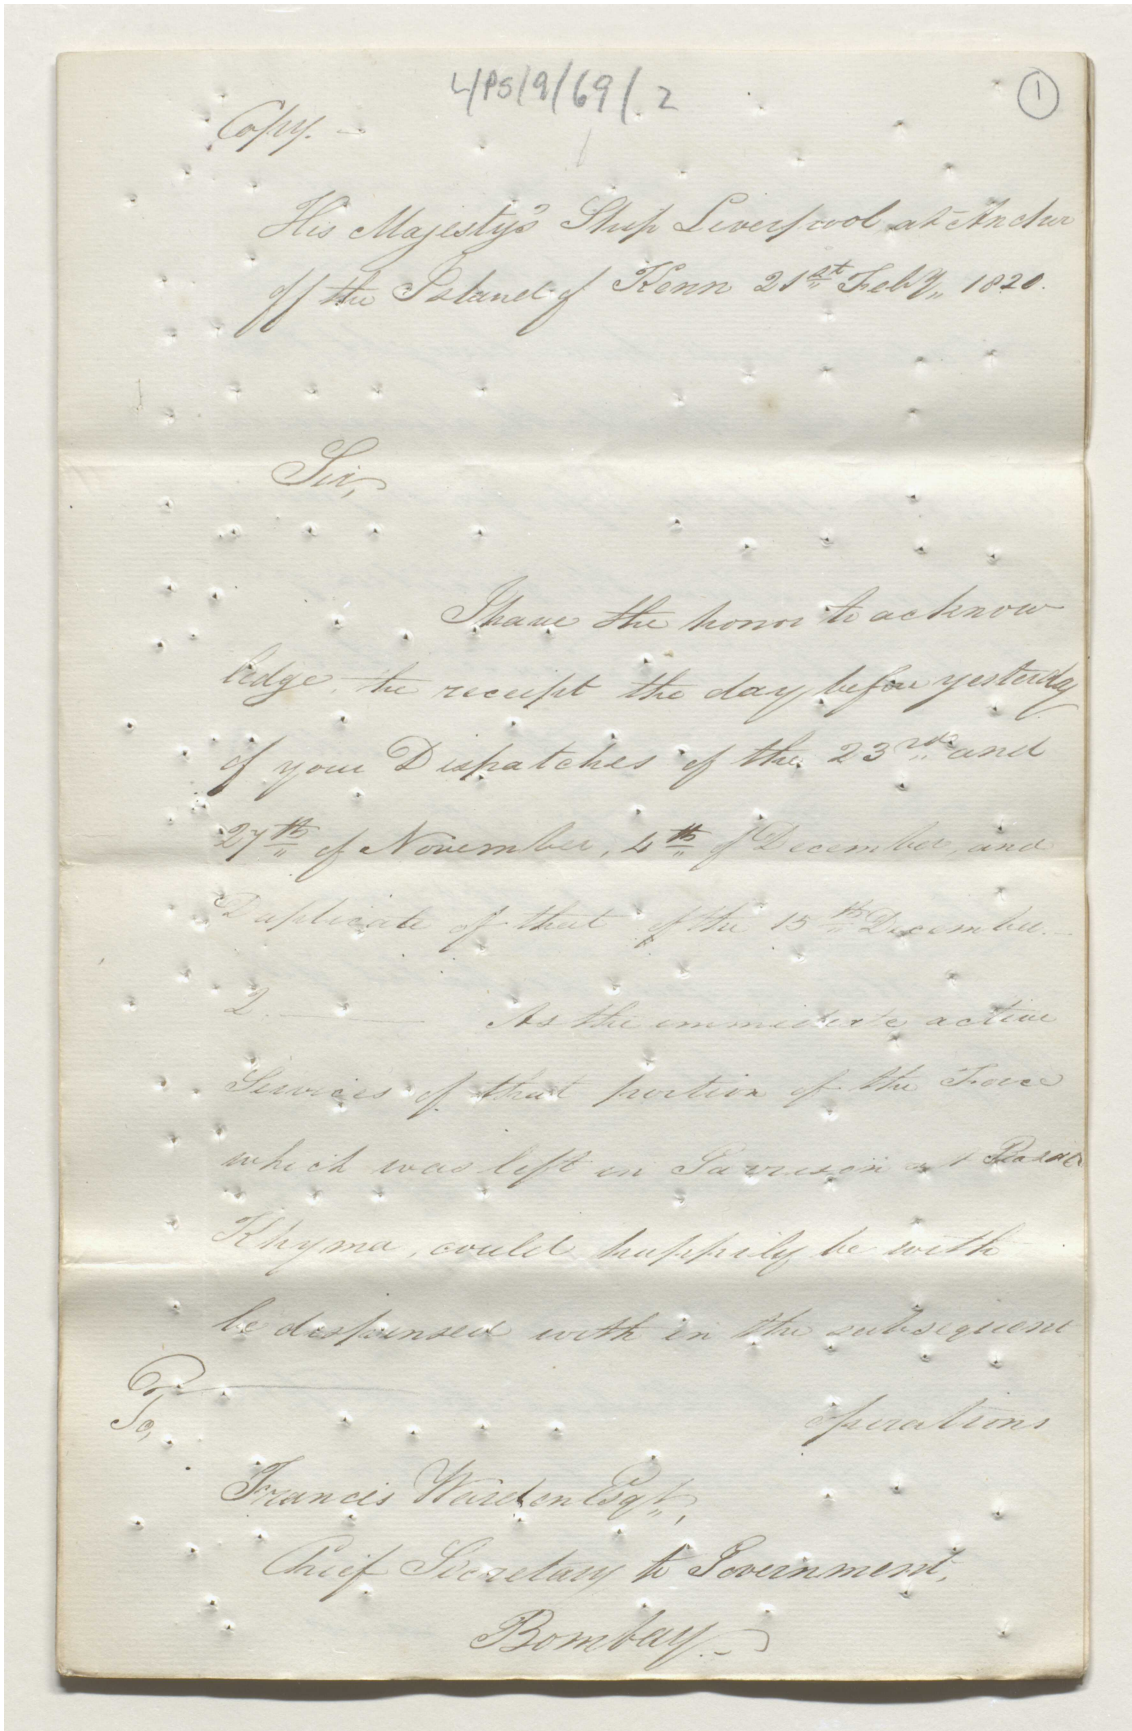 L/PS/9/69/.2
1
Copy. –
His Majesty's Ship Liverpool at Anchor
off the Island of Kenn 21st Feby,, 1820.
Sir,
I have the honor to acknow
ledge the receipt the day before yesterday
of your Dispatches of the 23rd and
27th of November, 4th of December, and
Duplicate of that of the 15th December. –
2. ——— As the immediate active
Services of that portion of the Force
which was left in Garrison at Rasal
Khyma, could happily be with
be dispensed with in the subsequent
operations
To,
Francis Warden Esqr,,
Chief Secretary to Government,
Bombay. –